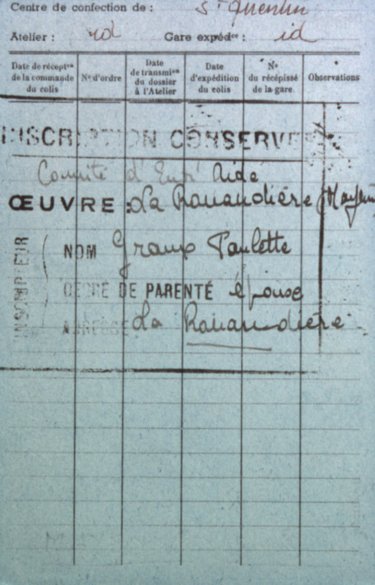 Centre de confection de : St Quentin
Atelier : id Gare expédre : id
Date de récepton de la commande du colis
N° d'ordre
Date de transmion du dossier à l'Atelier
Date d'expédition du colis
N° du récépissé de la gare.
Observations
INSCRIPTION CONSERVE
Comité d' Aide
ŒUVRE : La Ronaudière
INSCRIPTEUR
NOM Paulette
DEGRÉ DE PARENTÉ épouse
ADRESSE La Ronaudière